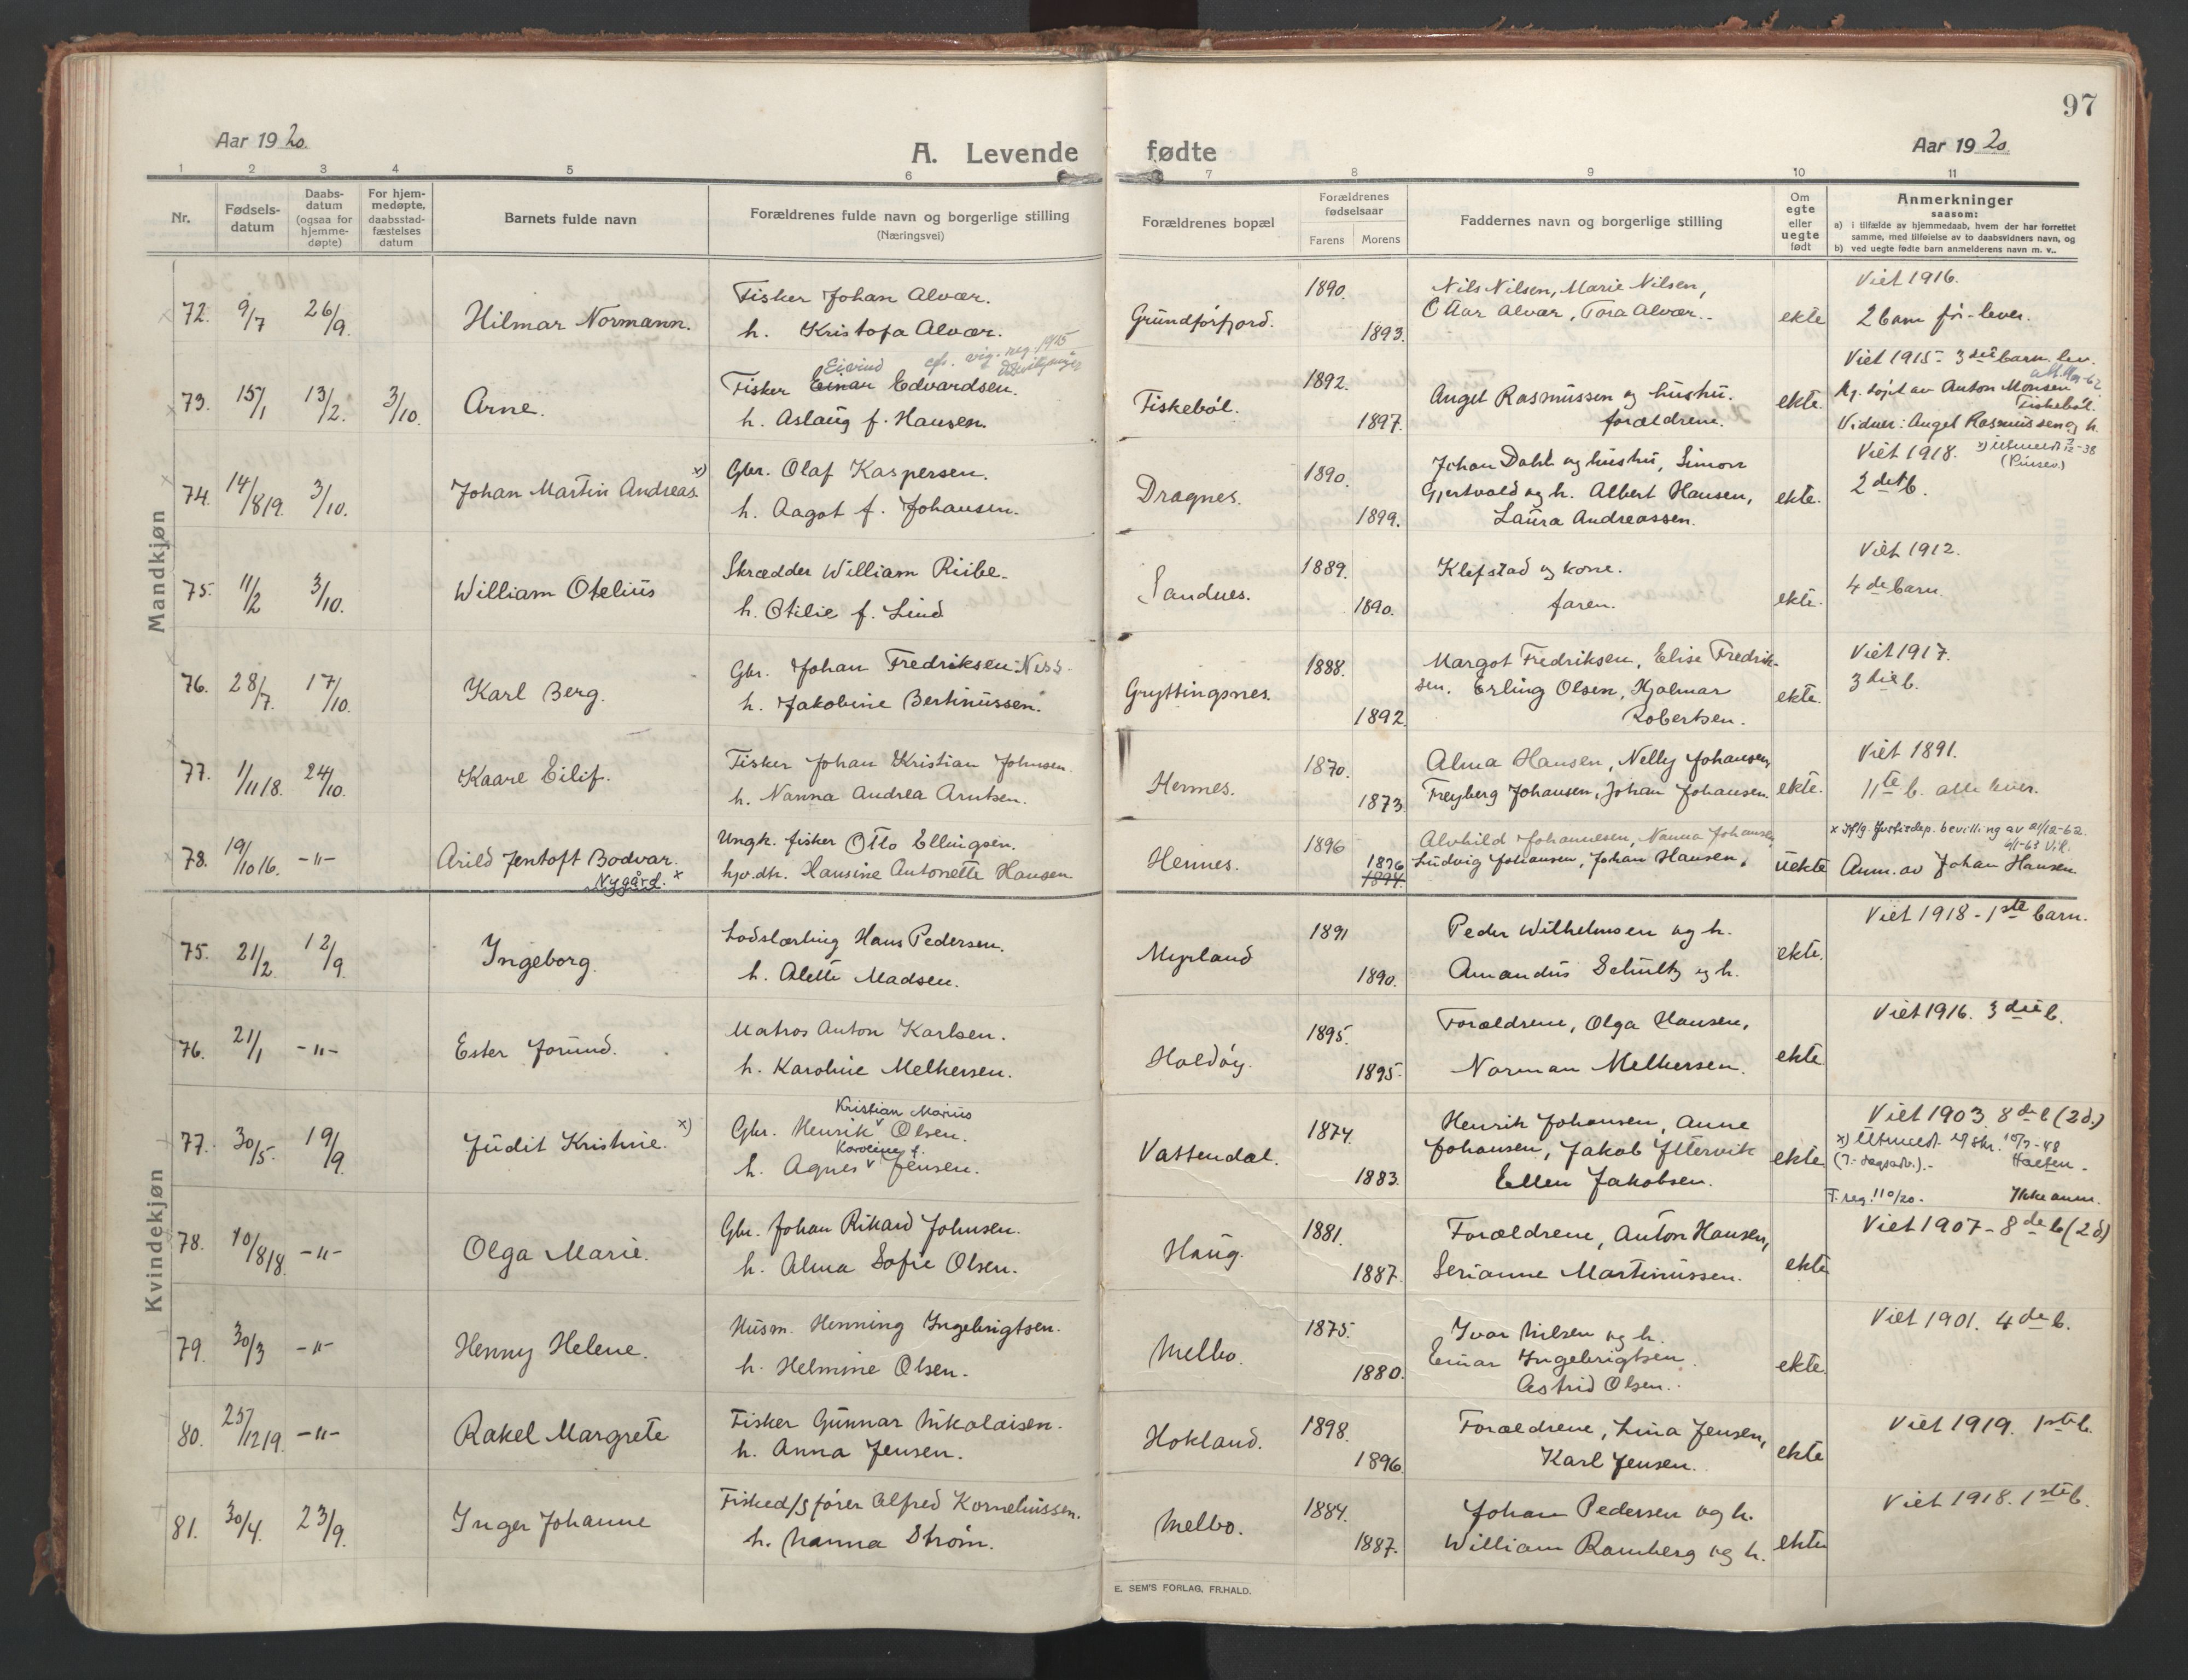 97
Aar 1920.
A. Levende fødte
Aar 1920.
1 2 3 4 5 6 7 8 9 10 11
Nr.
Fødsels-
datum
Daabs-
datum
(ogsaa for
hjemme-
døpte)
For hjem-
medøpte,
daabsstad-
fæstelses
datum
Barnets fulde navn
Forældrenes fulde navn og borgerlige stilling
(Næringsvei)
Forældrenes bopæl
Forældrenes
fødselsaar
Farens Morens
Faddernes navn og borgerlige stilling
Om
egte
eller
uegte
født
Anmerkninger
saasom:
a) i tilfælde av hjemmedaab, hvem der har forrettet
samme, med tilføielse av to daabsvidners navn, og
b) ved uegte fødte barn anmelderens navn m. v..
Mandkjøn
72. 9/7 26/9. Hilmar Normann.
Fisker Johan Alvær.
h. Kristofa Alvær.
Grundførfjord. 1890. 1893.
Nils Nilsen, Marie Nilsen,
Ottar Alvær, Tora Alvær.
ekte
Viet 1916.
2 barn før - lever.
73. 15/1 13/2. 3/10. Arne.
Eivind
Fisker Einar Edvardsen.
h. Aslaug f. Hansen.
Fiskebøl. 1892. 1897.
Anget Rasmussen og hushu.
forældrene.
ekte.
Viet 1915 - 3die barn. lev.
Hj. døpt av Anton Monsen
Fiskebøl.
Vidner: Anget Rasmussen og h.
74. 14/8 19. 3/10. Johan Martin Andreas. x)
Gbr. Olaf Kaspersen.
h. Aagot f. Johansen.
Dragnes. 1890. 1899.
Johan Dahl og hushu, Simon
Gjertvold og h. Albert Hansen,
Laura Andreassen.
ekte.
Viet 1918.
2det b.
75. 11/2 3/10. William Otelius
Skrædder William Riibe.
h. Otilie f. Lind
Sandnes. 1889. 1890.
Klefstad og kone.
faren.
ekte.
Viet 1912.
4de barn.
76. 28/7. 17/10. Karl Berg.
Gbr. Johan Fredriksen-Ness.
h. Jakobine Bertinussen.
Gryttingsnes. 1888. 1892.
Margot Fredriksen, Elise Fredrik-
sen. Erling Olsen, Hjalmar
Robertsen.
ekte.
Viet 1917.
3die b.
77. 1/11 18. 24/10. Kaare Eilif.
Fisker Johan Kristian Johnsen.
h. Nanna Andrea Arntsen.
Hennes. 1870. 1873.
Alma Hansen, Nelly Johansen,
Freyberg Johansen, Johan Johansen.
ekte.
Viet 1891.
11te b. alle lever.
78. 19/10 16. -"- Arild Jentoft Bodvar.
Nygård. x
Ungk. fisker Otto Ellingsen.
hjv. dtr. Hansine Antonette Hansen
Hennes. 1896 1896 1894.
Alvhild Johannesen, Nanna Johansen,
Ludvig Johansen, Johan Hansen.
uekte
x Iflg. Justisdep. bevilling av 21/12-62.
Anm. av Johan Hansen.
Kvindekjøn
75. 21/2 12/9. Ingeborg.
Lodslærling Hans Pedersen.
h. Alette Madsen.
Myrland 1891 1890.
Peder Wilhelmsen og h.
Amandus Schultz og h.
ekte.
Viet 1918 - 1ste barn.
76. 21/1 -"- Ester Jorund.
Matros Anton Karlsen.
h. Karoline Melkersen.
Holdøy. 1895. 1895.
Forældrene, Olga Hansen,
Norman Melkersen.
ekte
Viet 1916. 3die b.
77. 30/5. 19/9 Judit Kristine. x)
Kristian Marius
Gbr. Henrik Olsen.
Karoline f.
h. Agnes Jensen.
Vattendal. 1874. 1883.
Henrik Johansen, Anne
Johansen, Jakob Yttervik
Ellen Jakobsen.
ekte
Viet 1903. 8de b (2 d.)
F. reg. 110/20. - Ikke anm.
78. 10/8 18. -"- Olga Marie.
Gbr. Johan Rikard Johnsen.
h. Alma Sofie Olsen.
Haug. 1881. 1887.
Forældrene, Anton Hansen,
Serianne Martinussen.
ekte
Viet 1907 - 8de b (2 d)
79. 30/3 -"- Henny Helene.
Husm. Henning Ingebrigtsen.
h. Helmine Olsen.
Melbo. 1875. 1880.
Ivar Nilsen og h.
Einar Ingebrigtsen.
Astrid Olsen.
ekte.
Viet 1901. 4de b.
80. 25/12 19. -"- Rakel Margrete
Fisker Gunnar Nikolaisen.
h. Anna Jensen.
Hokland. 1898. 1896.
Forældrene, Lina Jensen,
Karl Jensen.
ekte
Viet 1919. 1ste b.
81. 30/4. 23/9. Inger Johanne
Fisked/s fører Alfred Korneliussen.
h. Nanna Strøm.
Melbo. 1884. 1887.
Johan Pedersen og h.
William Ramberg og h.
ekte
Viet 1918. 1ste b.
E. SEM'S FORLAG, FR.HALD.